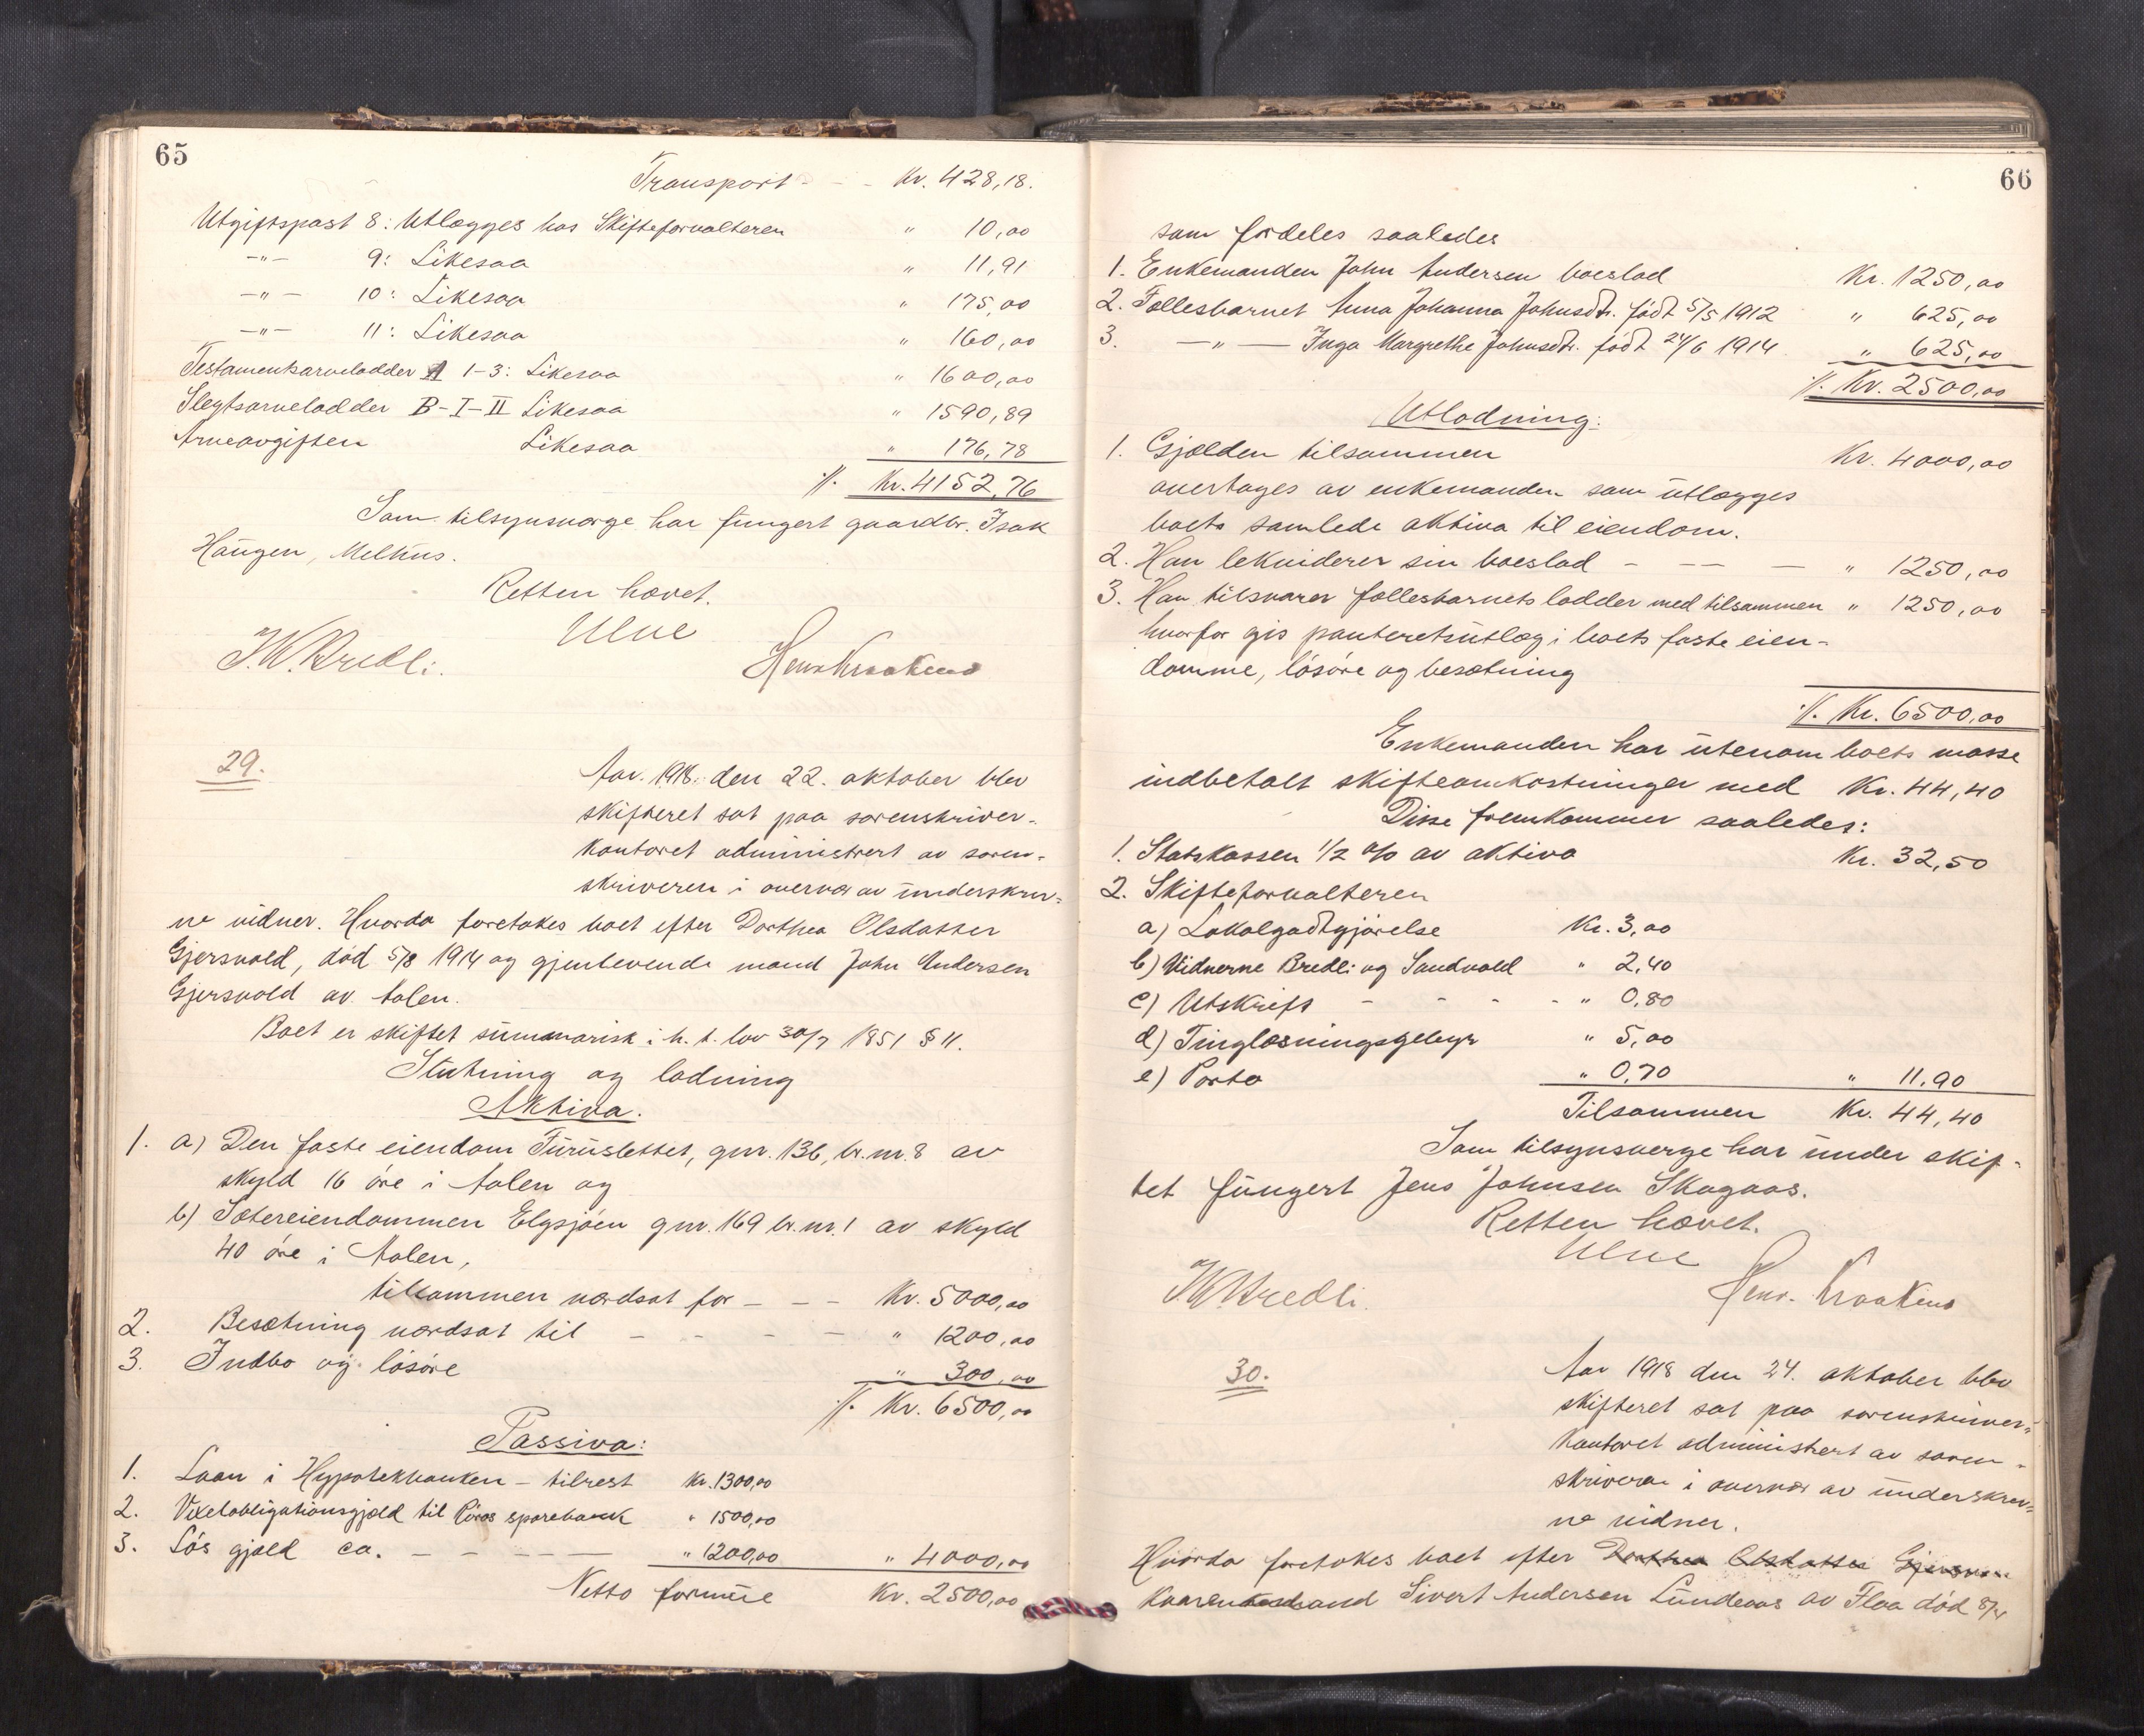 65
Transport - - - Kr. 428,18.
Utgiftspost 8: Utlægges hos Skifteforvalteren " 10,00
-"- 9: Likesaa " 11,91
-"- 10: Likesaa " 175,00
-"- 11: Likesaa " 160,00
Testamentsarvelodder A 1-3: Likesaa " 1600,00
Slegtsarvelodder B-I-II Likesaa " 1590,89
Arveavgiften Likesaa " 176,78
./. Kr. 4152,76
Som tilsynsværge har fungert gaardbr. Isak
Haugen, Melhus.
Retten hævet.
Ulve
J.K. Bredli. Henr Kraakmo
29.
Aar 1918 den 22. oktober blev
skifteret sat paa sorenskriver-
kontoret administrert av soren-
skriveren i overvær av underskrev-
ne vidner. Hvorda foretokes boet efter Dorthea Olsdatter
Gjersvold, död 5/8 1914 og gjenlevende mand John Andersen
Gjersvold av Aalen.
Boet er skiftet summarisk i h. t. lov 30/7 1851 § 11.
Slutning og lodning
Aktiva.
1. a) Den faste eiendom Furuslettet, gnr. 136, br.nr. 8 av
skyld 16 öre i Aalen og
b) Sætereiendommen Elgsjöen gnr. 169 br.nr. 1 av skyld
40 öre i Aalen,
tilsammen værdsat for - - - Kr. 5000,00
2. Besætning værdsat til - - - - " 1200,00
3. Indbo og lösöre " 300,00
./. Kr. 6500,00
Passiva:
1. Laan i Hypotekbanken - tilrest Kr. 1300,00
2. Vexelobligationsgjæld til Röros sparebank " 1500,00
3. Lös gjæld ca. - - - - " 1200,00 " 4000,00
Netto formue Kr. 2500,00
66
som fordeles saaledes
1. Enkemanden John Andersen boeslod Kr. 1250,00
2. Fællesbarnet Anna Johanna Johnsdtr. född 5/5 1912 " 625,00
3. -"- Inga Margrethe Johnsdtr. född 24/6 1914 " 625,00
./. Kr. 2500,00
Utlodning:
1. Gjælden tilsammen Kr. 4000,00
overtages av enkemanden som utlægges
boets samlede aktiva til eiendom.
2. Han lekviderer sin boeslod - - - - " 1250,00
3. Han tilsvarer fællesbarnets lodder med tilsammen " 1250,00
hvorfor gis panteretsutlæg i boets faste eien-
domme, lösöre og besætning
./. Kr. 6500,00
Enkemanden har utenom boets masse
indbetalt skifteomkostninger med Kr. 44,40
Disse fremkommer saaledes:
1. Statskassen 1/2 o/o av aktiva Kr. 32,50
2. Skifteforvalteren
a) Lokalgodtgjörelse Kr. 3,00
b) Vidnerne Bredli og Sandvold " 2,40
c) Utskrift - - - - " 0,80
d) Tinglæsningsgebyr " 5,00
e) Porto " 0,70 " 11,90
Tilsammen Kr. 44,40
Som tilsynsverge har under skif-
tet fungert Jens Johnsen Skogaas.
Retten hævet.
Ulve
J.K. Bredli. Henr. Kraakmo
30.
Aar 1918 den 24. oktober blev
skifteret sat paa sorenskriver-
kontoret administrert av soren-
skriveren i overvær av underskrev-
ne vidner.
Hvorda foretokes boet efter Dorthea Olsdatter Gjersvold
Sivert Andersen Lundemo av Flaa död 8/4